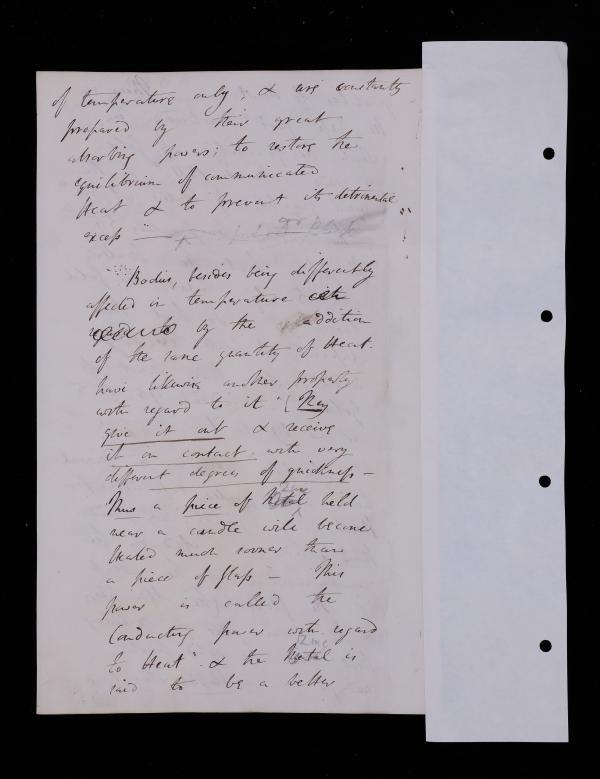 of temperature only; & are constantly
prepared by their great
absorbing powers; to restore the
equilibrium of communicated
Heat & to prevent its detrimental
excess —
Bodies, besides being differently
affected in temperature
by the addition
of the same quantity of Heat.
have likewise another property
with regard to it (They
give it out & receive
it on contact with very
different degrees of quickness –
Thus a piece of Metal held
Zinc
near a candle will become
heated much sooner than
a piece of glass – This
power is called the
Conducting power with regard
Zinc
to Heat & the Metal is
said to be a better